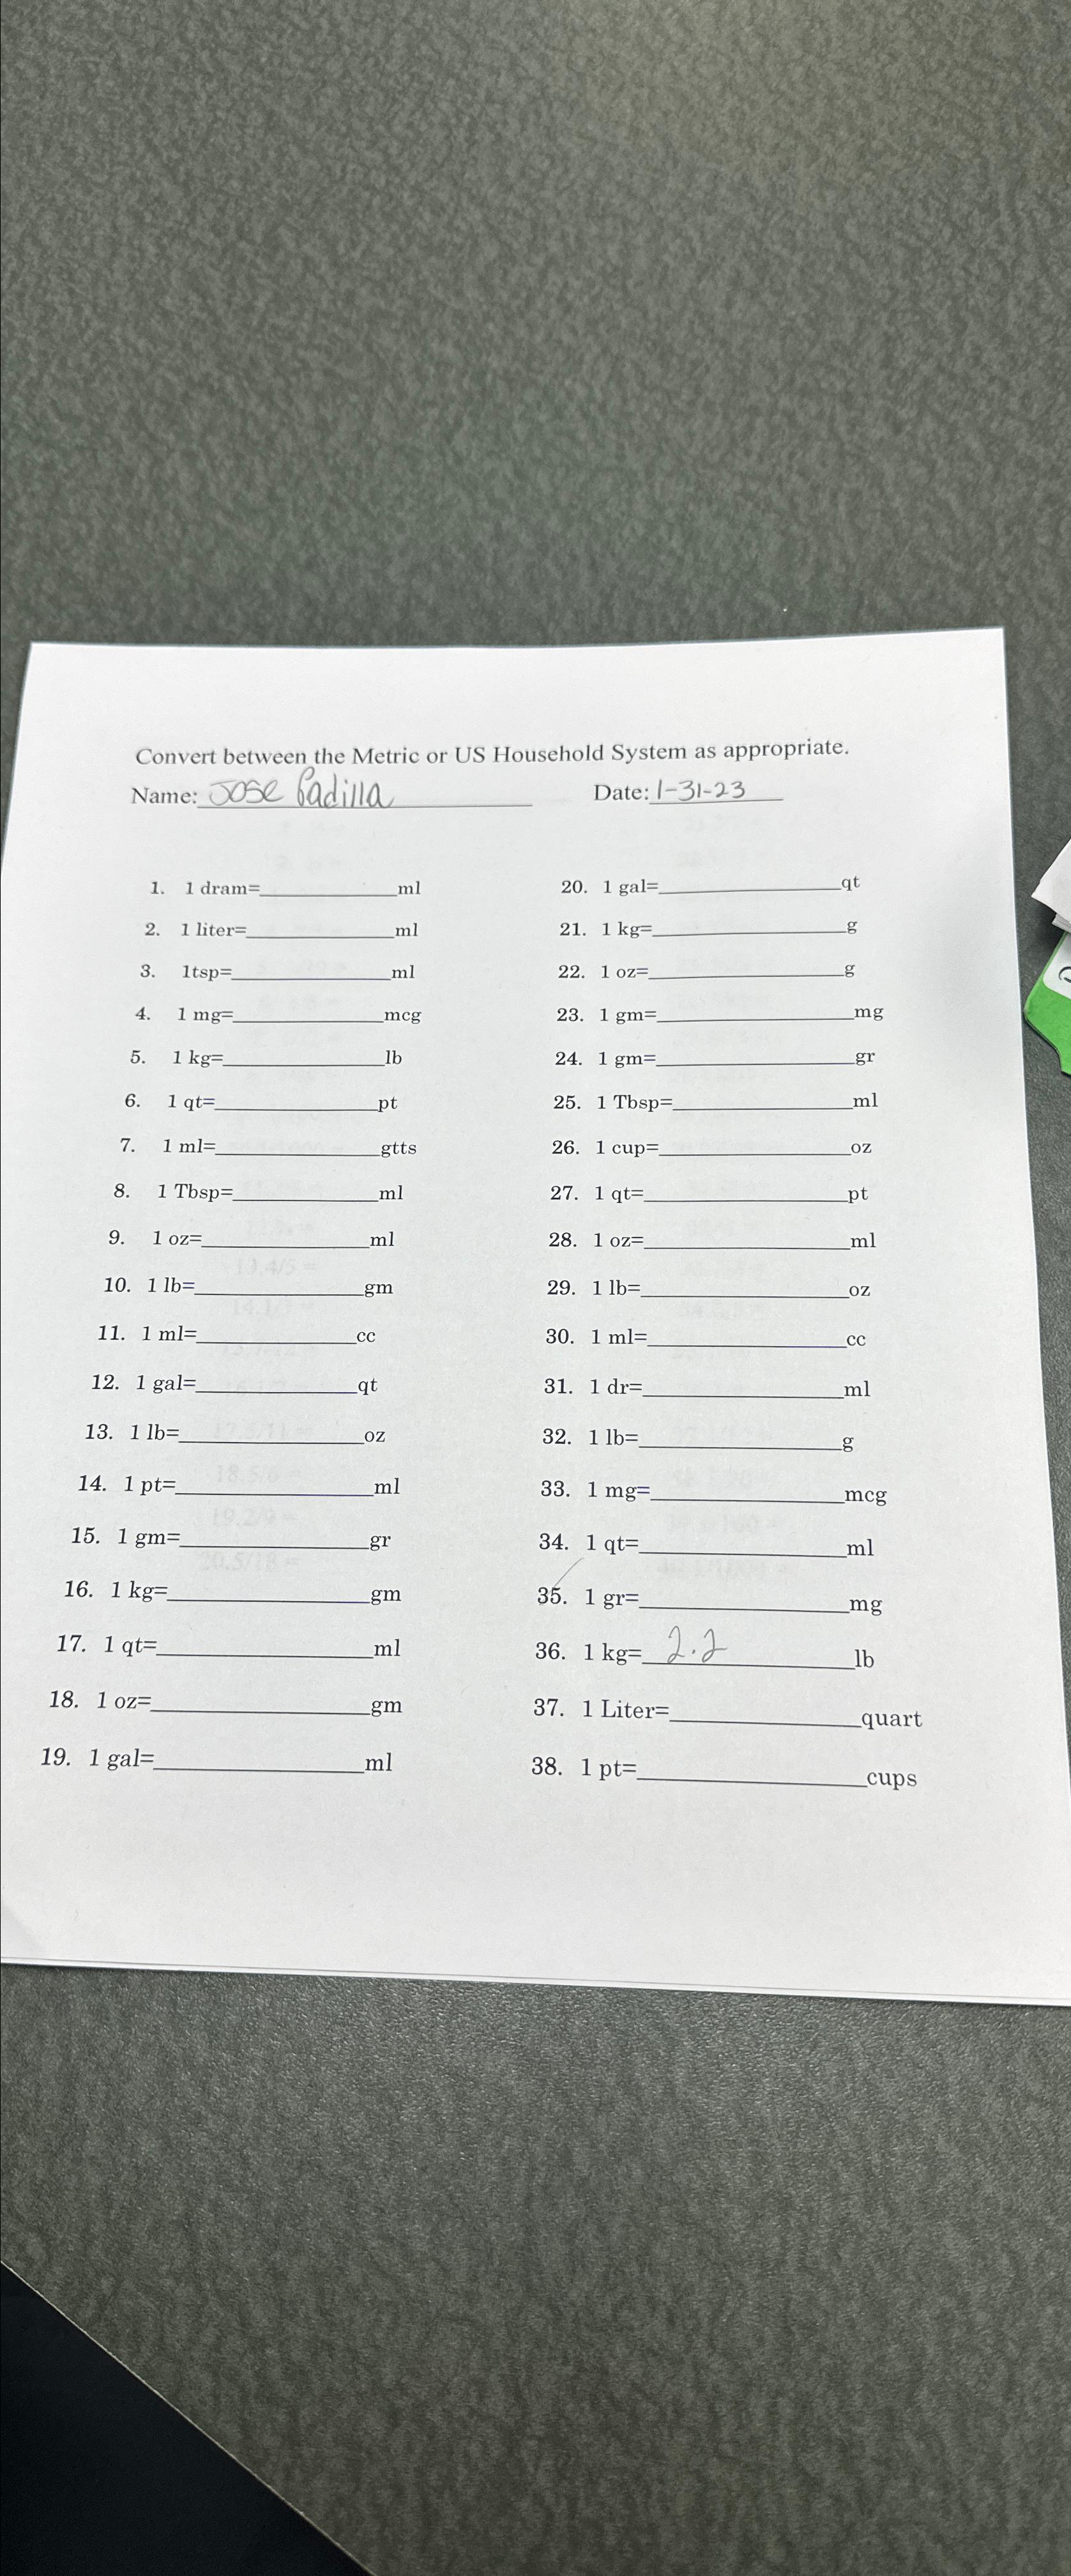 Convert between the Metric or US Household System as appropriate.
Name: Jose Padilla Date: 1-31-23
1. 1 dram=____________ml
2. 1 liter=____________ml
3. 1tsp=____________ml
4. 1 mg=____________mcg
5. 1 kg=____________lb
6. 1 qt=____________pt
7. 1 ml=____________gtts
8. 1 Tbsp=____________ml
9. 1 oz=____________ml
10. 1 lb=____________gm
11. 1 ml=____________cc
12. 1 gal=____________qt
13. 1 lb=____________oz
14. 1 pt=____________ml
15. 1 gm=____________gr
16. 1 kg=____________gm
17. 1 qt=____________ml
18. 1 oz=____________gm
19. 1 gal=____________ml
20. 1 gal=____________qt
21. 1 kg=____________g
22. 1 oz=____________g
23. 1 gm=____________mg
24. 1 gm=____________gr
25. 1 Tbsp=____________ml
26. 1 cup=____________oz
27. 1 qt=____________pt
28. 1 oz=____________ml
29. 1 lb=____________oz
30. 1 ml=____________cc
31. 1 dr=____________ml
32. 1 lb=____________g
33. 1 mg=____________mcg
34. 1 qt=____________ml
35. 1 gr=____________mg
36. 1 kg= 2.2 lb
37. 1 Liter=____________quart
38. 1 pt=____________cups